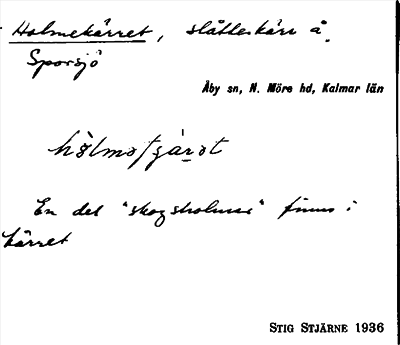 Holmekärret, slåtteskärr å
Sporsjö
Åby sn, N. Möre hd, Kalmar län
En del "skogsholmar" finns i
kärret
STIG STJÄRNE 1936